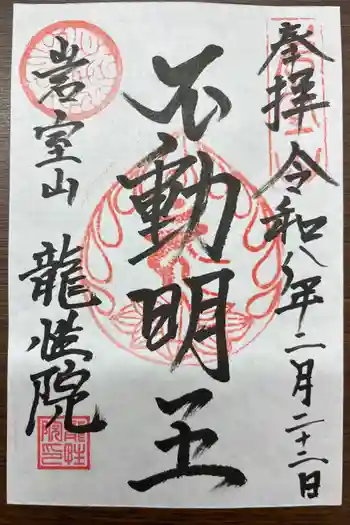 奉拝 令和八年二月二十二日
不動明王
岩室山 龍性院
龍性
院印